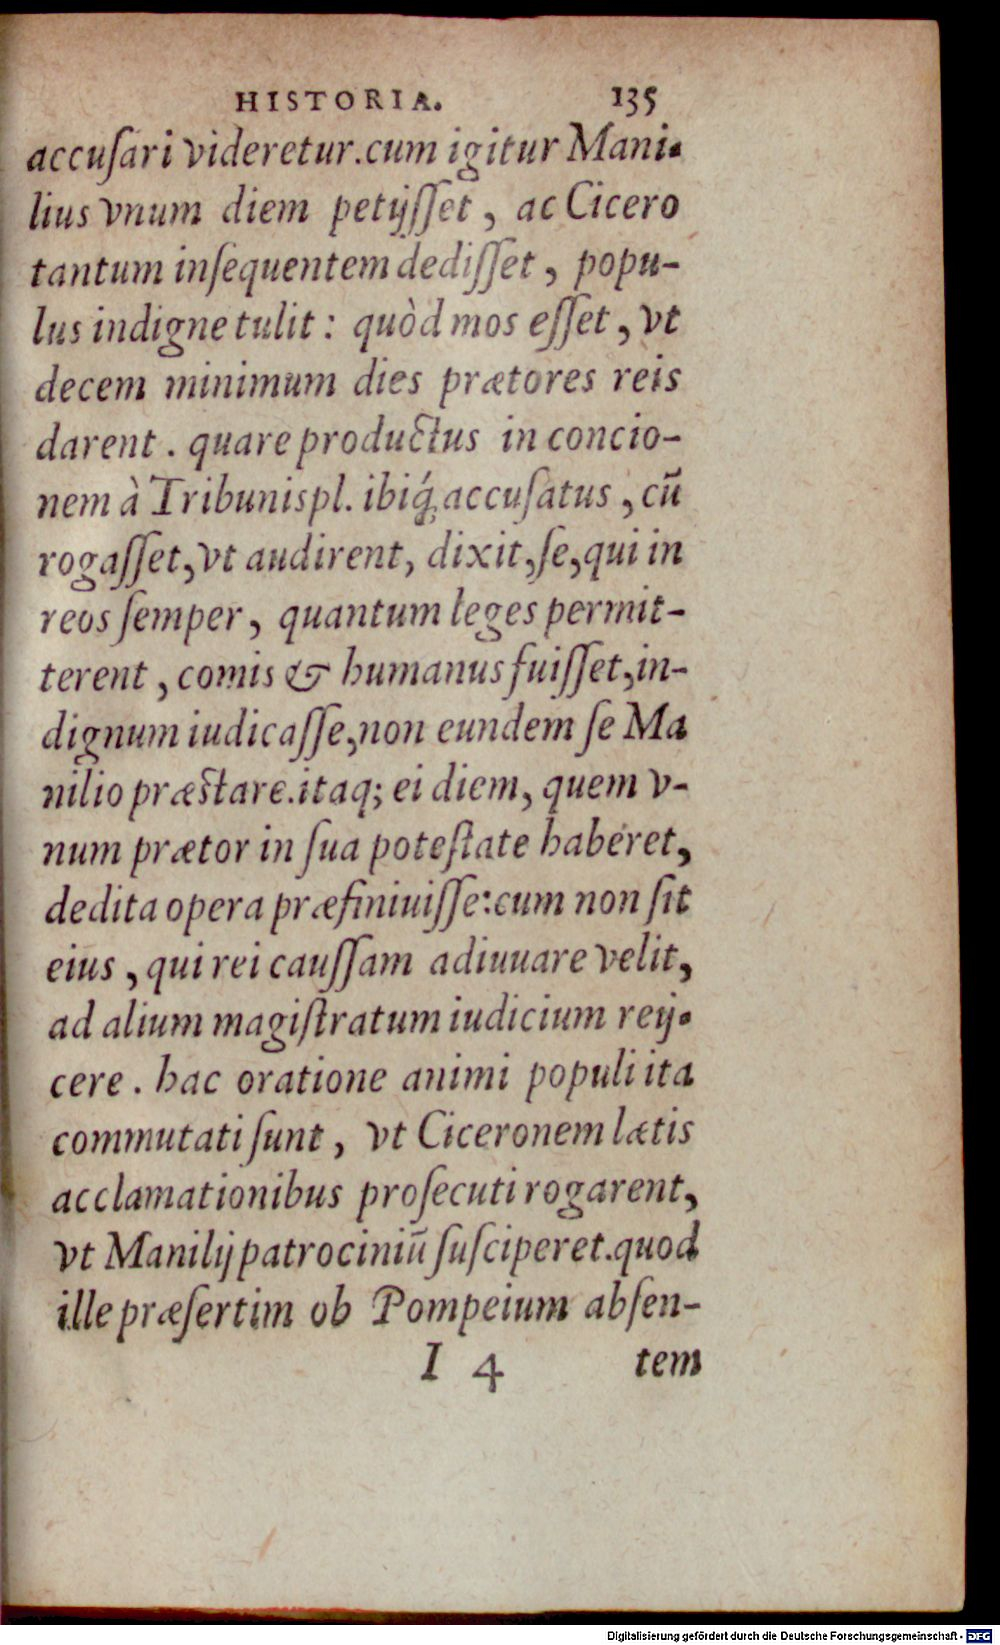 HISTORIA. 135
accuſari videretur.cum igitur Mani-
lius vnum diem petijſſet, ac Cicero
tantum inſequentem dediſſet, popu-
lus indigne tulit: quòd mos eſſet, vt
decem minimum dies prætores reis
darent. quare productus in concio-
nem à Tribunis pl. ibiq́; accuſatus, cū
rogaſſet, vt audirent, dixit, ſe, qui in
reos ſemper, quantum leges permit-
terent, comis & humanus fuiſſet, in-
dignum iudicaſſe, non eundem ſe Ma
nilio præstare.itaq; ei diem, quem v-
num prætor in ſua poteſtate haberet,
dedita opera præfiniuiſſe: cum non ſit
eius, qui rei cauſſam adiuuare velit,
ad alium magiſtratum iudicium reij-
cere. hac oratione animi populi ita
commutati ſunt, vt Ciceronem lætis
acclamationibus proſecuti rogarent,
vt Manilij patrociniū ſuſciperet.quod
ille præſertim ob Pompeium abſen-
I 4 tem
Digitalisierung gefördert durch die Deutsche Forschungsgemeinschaft - DFG